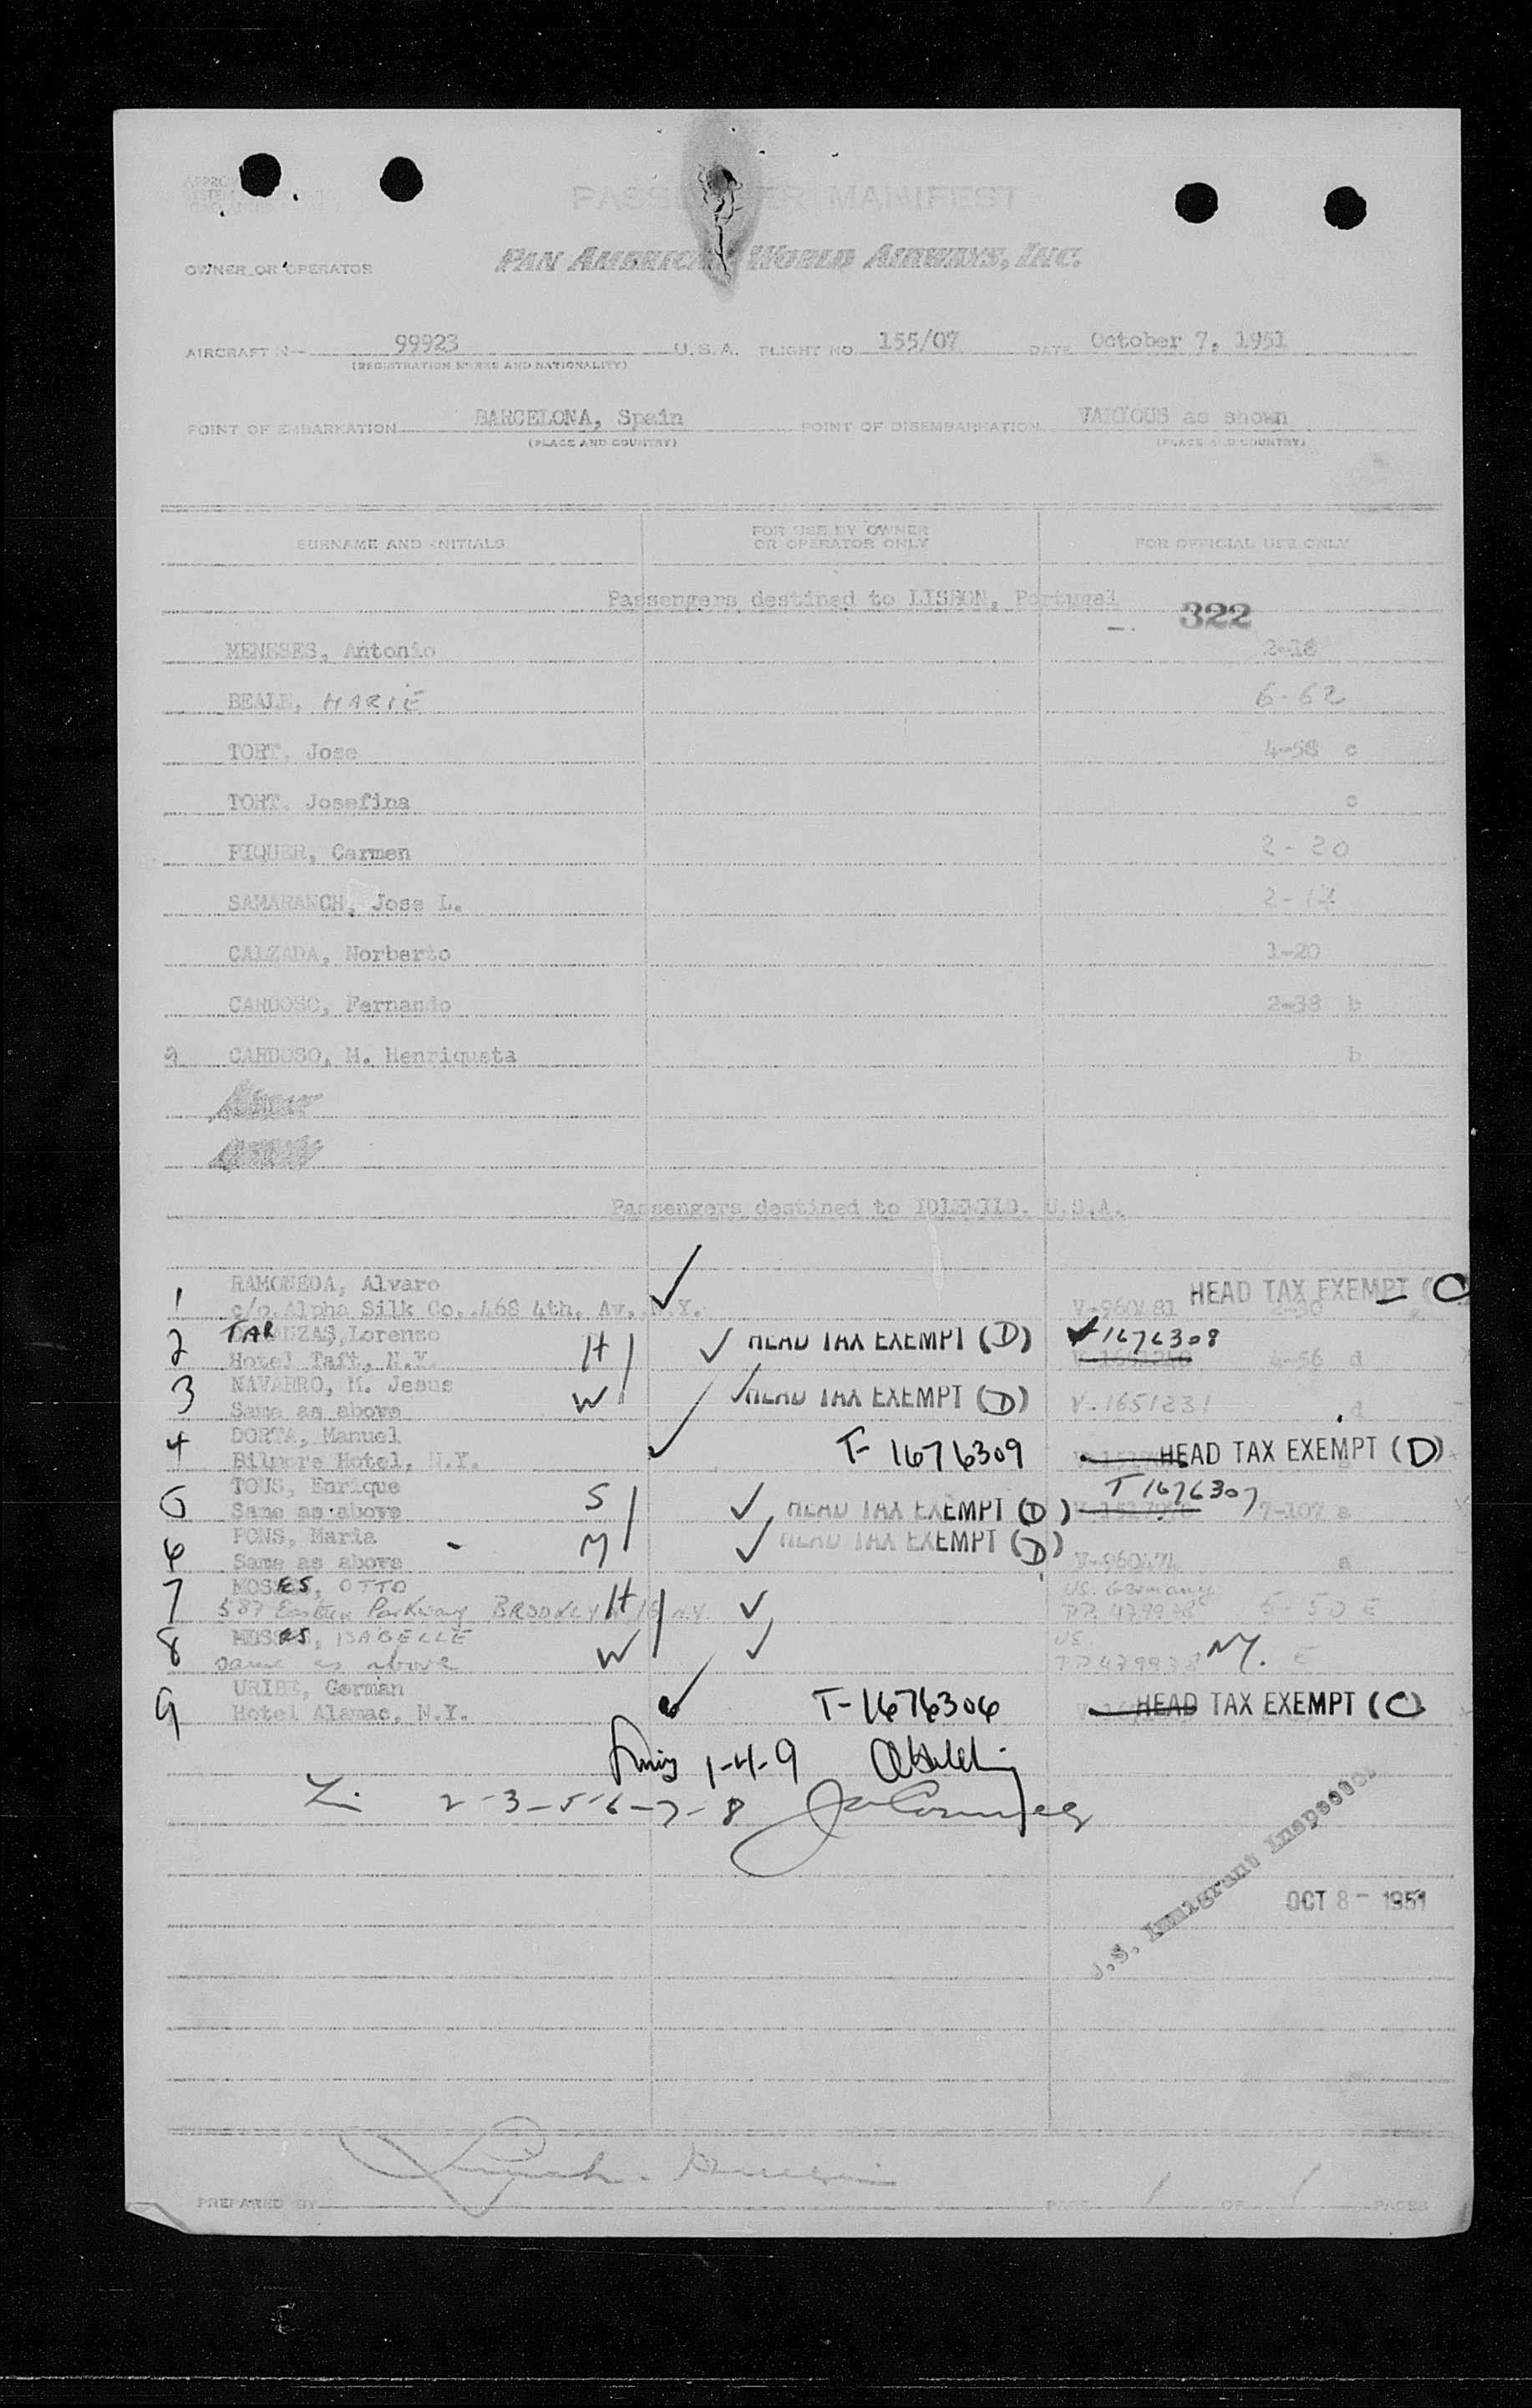 PASSENGER MANIFEST
OWNER OR OPERATOR PAN AMERICAN WORLD AIRWAYS, INC.
AIRCRAFT N— 99923 U.S.A. FLIGHT NO. 155/07 DATE October 7, 1951
(REGISTRATION MARKS AND NATIONALITY)
POINT OF EMBARKATION BARCELONA, Spain POINT OF DISEMBARKATION VARIOUS as shown
(PLACE AND COUNTRY) (PLACE AND COUNTRY)
SURNAME AND INITIALS FOR USE BY OWNER OR OPERATOR ONLY FOR OFFICIAL USE ONLY
Passengers destined to LISBON, Portugal
322
MENESES, Antonio 2-18
BEALE, MARIE 6-62
TORT, Jose 4-58 c
TORT, Josefina c
PIQUER, Carmen 2-20
SAMARANCH, Jose L.
CALZADA, Norberto 1-20
CARDOSO, Fernando 2-38 b
9 CARDOSO, M. Henriqueta b
Passengers destined to IDLEWILD, U.S.A.
1 RAMONEDA, Alvaro HEAD TAX EXEMPT (C
c/o Alpha Silk Co. 468 4th. Av. N.Y. V-960481 2-30
2 Lorenzo HEAD TAX EXEMPT (D) 1676308
Hotel Taft, N.Y. H 4-56 d
3 NAVARRO, M. Jesus HEAD TAX EXEMPT (D) V-1651231
Same as above W d
4 DORTA, Manuel T-1676309 HEAD TAX EXEMPT (D)
Bilmore Hotel, N.Y.
5 TOUS, Enrique S T 1676307
Same as above HEAD TAX EXEMPT (D) 7-107 a
6 PONS, Maria M HEAD TAX EXEMPT (D)
Same as above V-960474 a
7 MOSES, OTTO H US. Germany
587 Eastern Parkway BROOKLYN 16 N.Y. PP. 479938 5-50 E
8 MOSES, ISABELLE US.
same as above W PP 479938 M. E
9 URIBE, German T-1676306
Hotel Alamac, N.Y. HEAD TAX EXEMPT (C)
1-4-9
2-3-5-6-7-8
U.S. Immigrant Inspector
OCT 8 - 1951
PREPARED BY PAGE 1 OF 1 PAGES